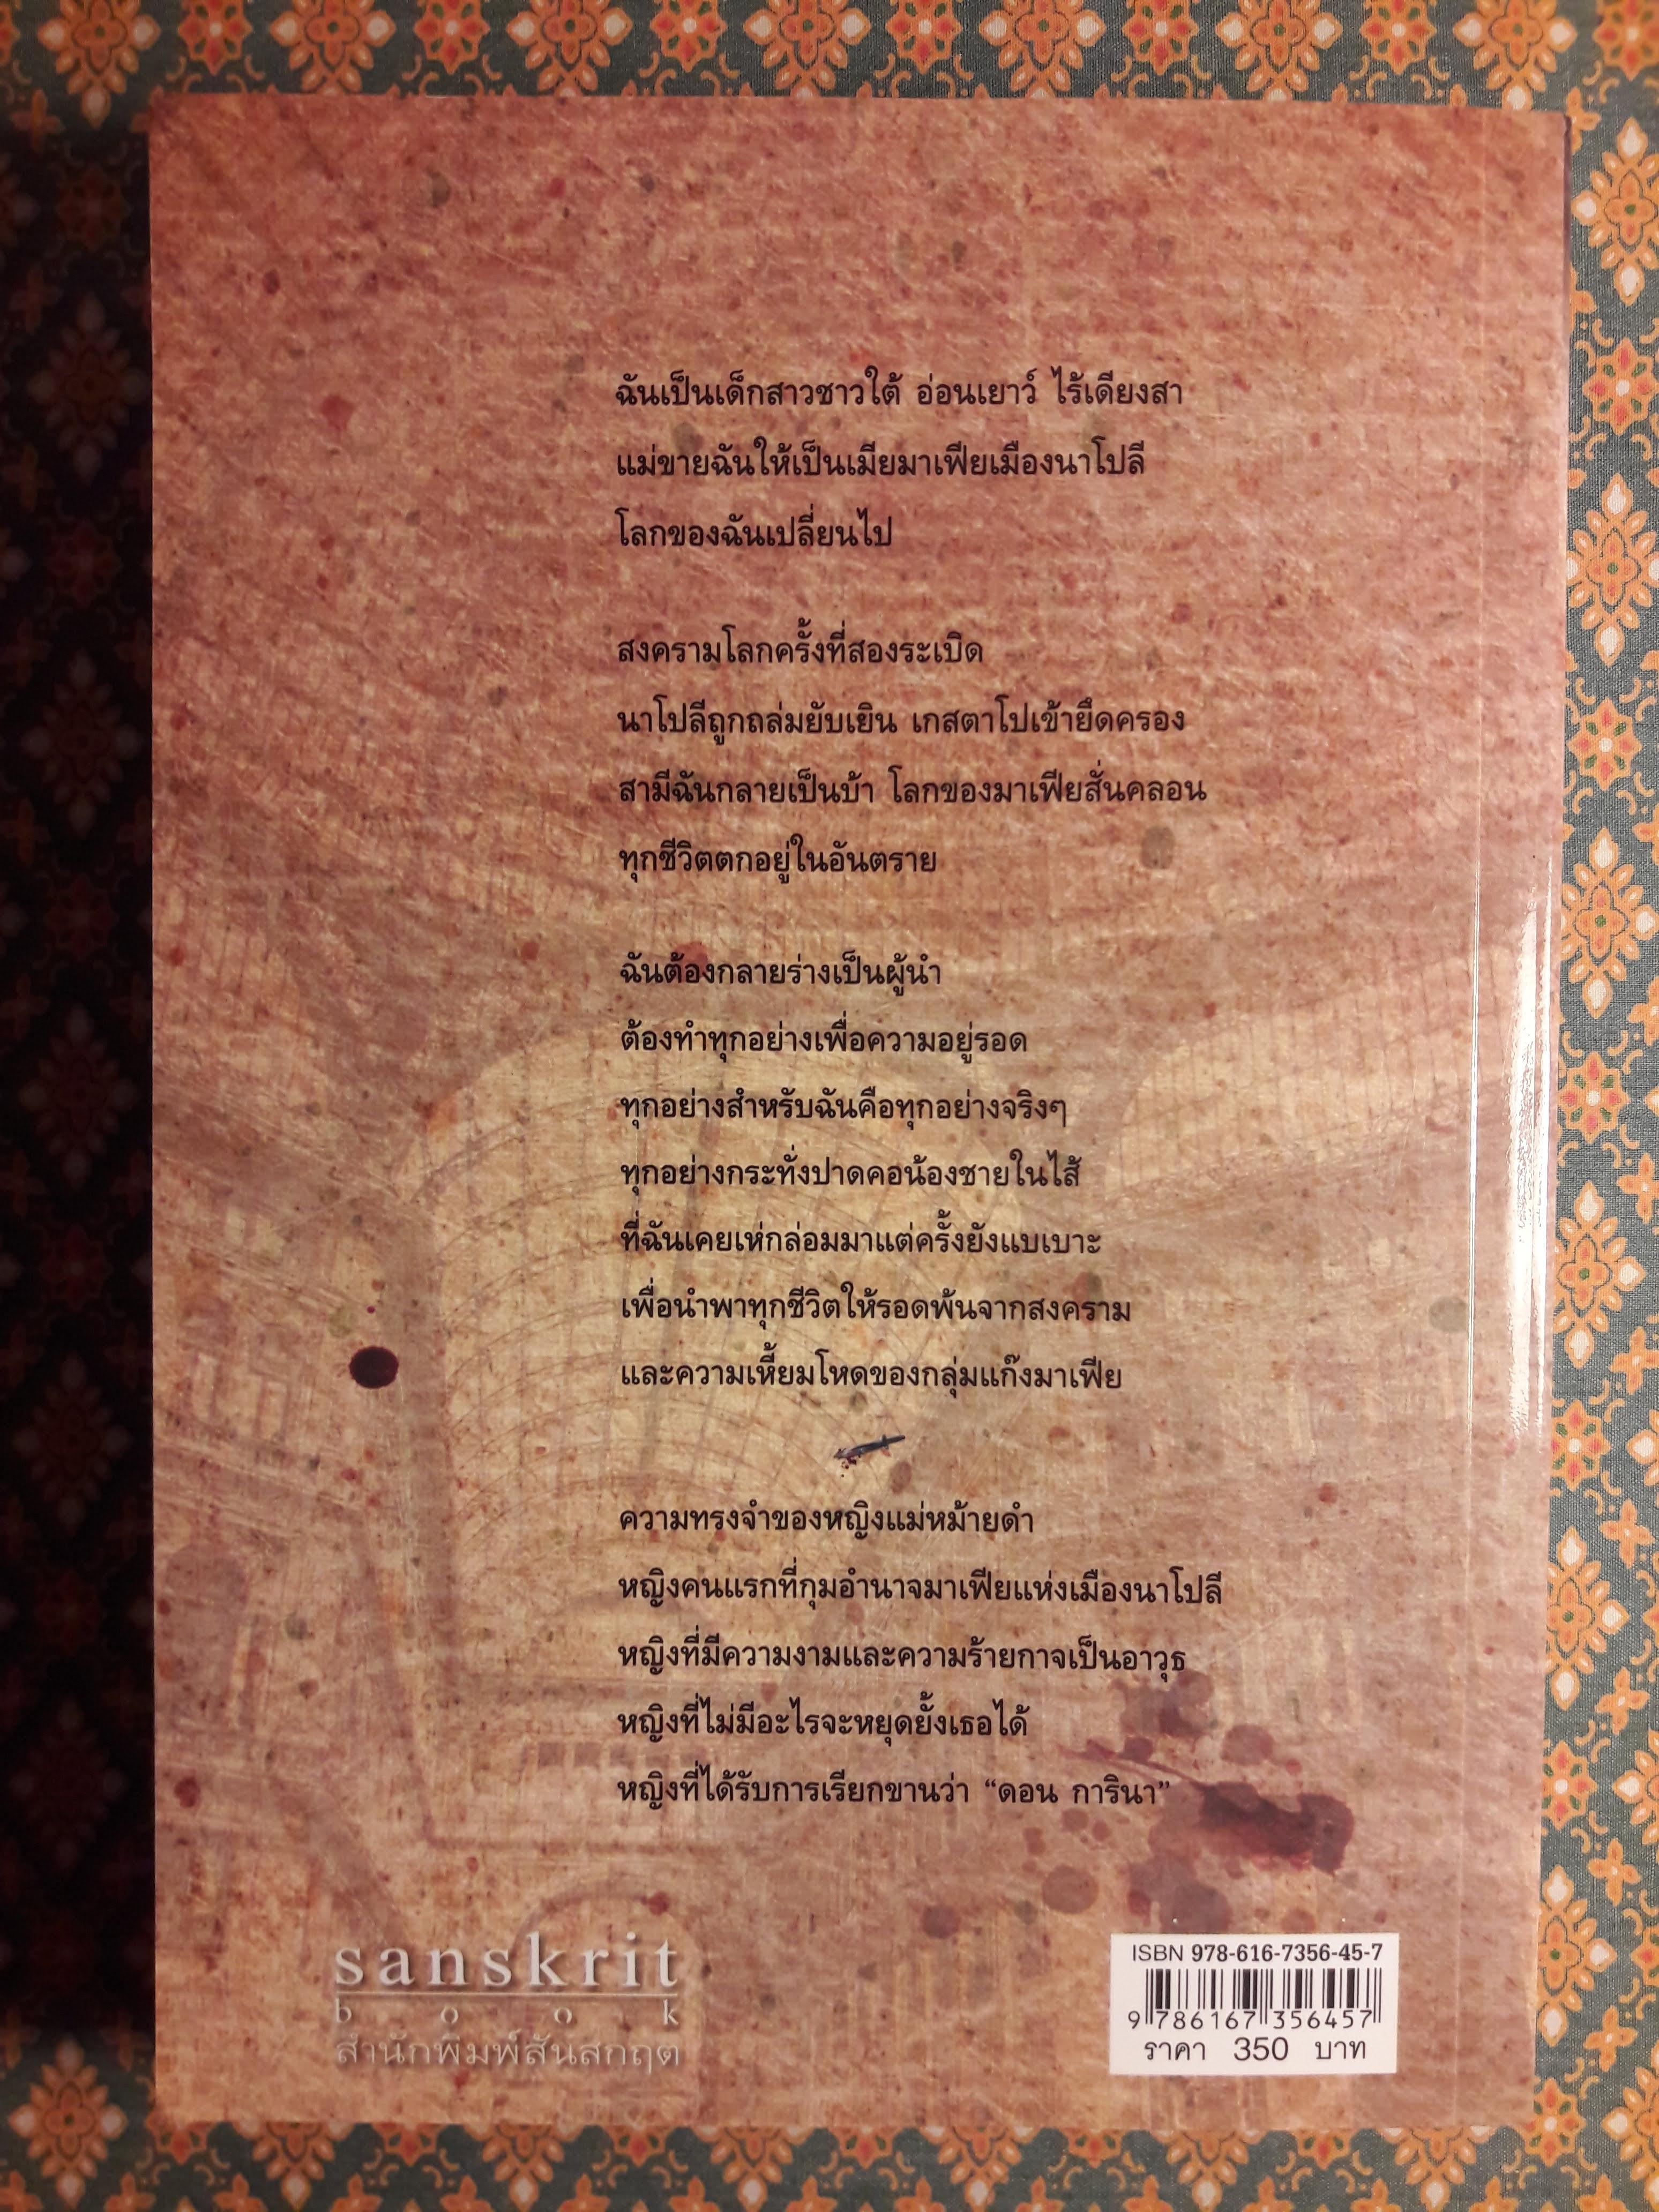 ฉันเป็นเด็กสาวชาวใต้ อ่อนเยาว์ ไร้เดียงสา
แม่ขายฉันให้เป็นเมียมาเฟียเมืองนาโปลี
โลกของฉันเปลี่ยนไป
สงครามโลกครั้งที่สองระเบิด
นาโปลีถูกถล่มยับเยิน เกสตาโปเข้ายึดครอง
สามีฉันกลายเป็นบ้า โลกของมาเฟียสั่นคลอน
ทุกชีวิตตกอยู่ในอันตราย
ฉันต้องกลายร่างเป็นผู้นำ
ต้องทำทุกอย่างเพื่อความอยู่รอด
ทุกอย่างสำหรับฉันคือทุกอย่างจริงๆ
ทุกอย่างกระทั่งปาดคอน้องชายในไส้
ที่ฉันเคยเห่กล่อมมาแต่ครั้งยังแบเบาะ
เพื่อนำพาทุกชีวิตให้รอดพ้นจากสงคราม
และความเหี้ยมโหดของกลุ่มแก๊งมาเฟีย
ความทรงจำของหญิงแม่หม้ายดำ
หญิงคนแรกที่กุมอำนาจมาเฟียแห่งเมืองนาโปลี
หญิงที่มีความงามและความร้ายกาจเป็นอาวุธ
หญิงที่ไม่มีอะไรจะหยุดยั้งเธอได้
หญิงที่ได้รับการเรียกขานว่า “ดอน การินา”
sanskrit
book
สำนักพิมพ์สันสกฤต
ISBN 978-616-7356-45-7
9 786167 356457
ราคา 350 บาท